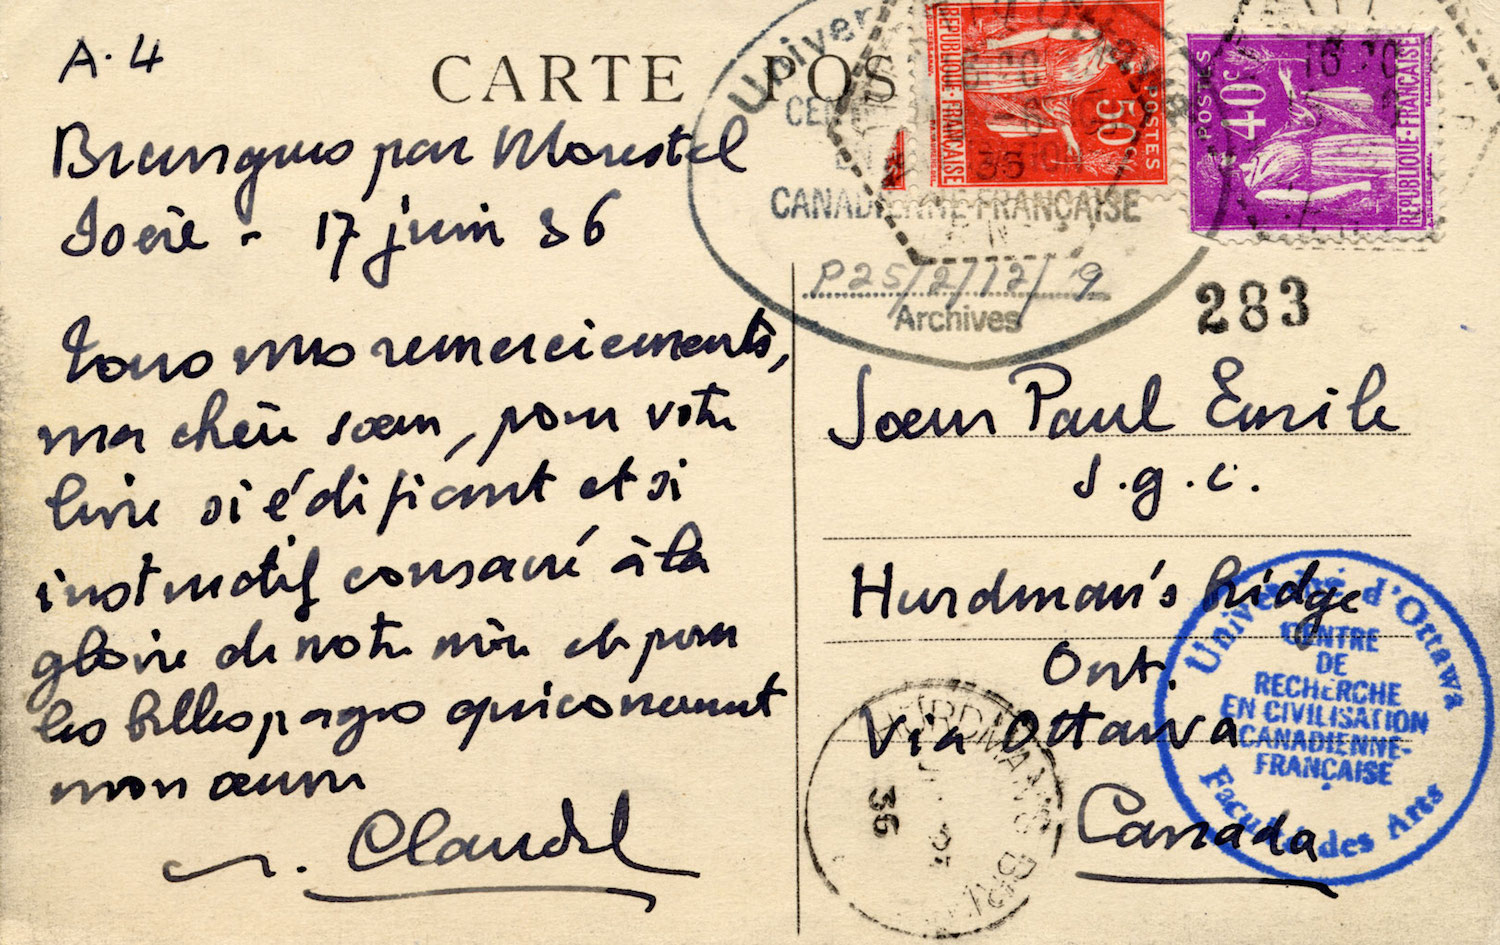 A.4
CARTE POS
Brangues par Morestel
Isère - 17 juin 36
Tous mes remerciements,
ma chère sœur, pour votre
livre si édifiant et si
instructif consacré à la
gloire de notre mère et pour
les belles pages qui concernent
mon œuvre
Claudel
RÉPUBLIQUE-FRANÇAISE
50c
POSTES
POSTES
40c
RÉPUBLIQUE-FRANÇAISE
Univer
CANADIENNE-FRANÇAISE
P25/2/12/9
Archives
283
Sœur Paul Emile
s.g.c.
Hurdman's bridge
Ont.
Via Ottawa
Canada
HURDMANS BRI
36
Université d'Ottawa
CENTRE
DE
RECHERCHE
EN CIVILISATION
CANADIENNE-
FRANÇAISE
Faculté des Arts